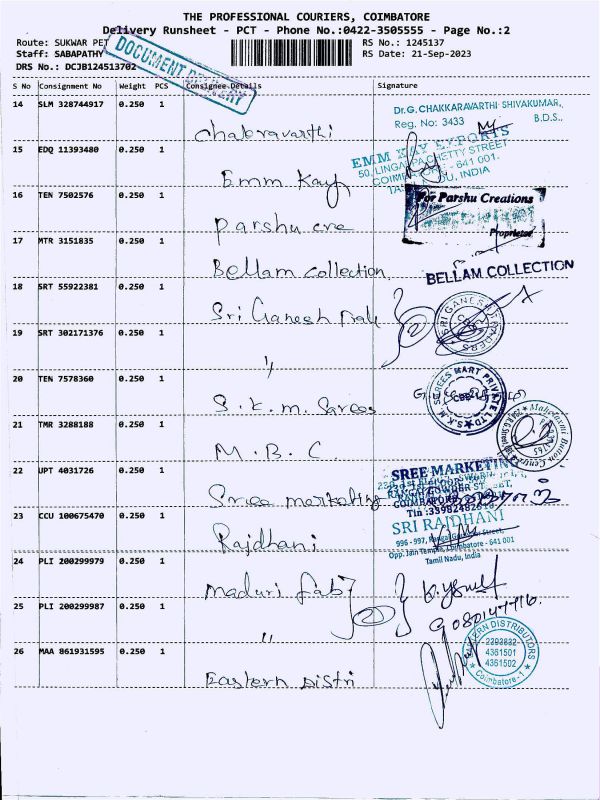 THE PROFESSIONAL COURIERS, COIMBATORE
Delivery Runsheet - PCT - Phone No.:0422-3505555 - Page No.:2
Route: SUKWAR PET
RS No.: 1245137
Staff: SABAPATHY
RS Date: 21-Sep-2023
DRS No.: DCJB124513702
DOCUMENT DELIVERY
S No Consignment No Weight PCS Consignee Details Signature
14 SLM 328744917 0.250 1
Dr.G. CHAKKARAVARTHI SHIVAKUMAR,
B.D.S.,
Reg. No: 3433
Chakravarthi
15 EDQ 11393480 0.250 1
EMM KAY EXPORTS
50, LINGAPPA CHETTY STREET
COIMBATORE - 641 001.
TAMIL NADU, INDIA
Emm Kay
16 TEN 7502576 0.250 1
For Parshu Creations
Proprietor
Parshu cre
17 MTR 3151835 0.250 1
Bellam collection
BELLAM COLLECTION
18 SRT 55922381 0.250 1
Sri Ganesh
SRI GANESH
19 SRT 302171376 0.250 1
"
20 TEN 7578360 0.250 1
S.K.M. Sarees
S.K.M. SAREES MART PRIVATE LTD
21 TMR 3288188 0.250 1
M.B.C.
Mahalaxmi Button Centre
22 UPT 4031726 0.250 1
SREE MARKETING
Sree marketing
Tin :33982482
23 CCU 100675470 0.250 1
SRI RAJDHANI
996 - 997, Rangai Gowder Street,
Opp. Jain Temple, Coimbatore - 641 001
Tamil Nadu, India
Rajdhani
24 PLI 200299979 0.250 1
Maduri fab
25 PLI 200299987 0.250 1
"
26 MAA 861931595 0.250 1
EASTERN DISTRIBUTORS
2393832
4361501
4361502
Coimbatore-1
Eastern Distri